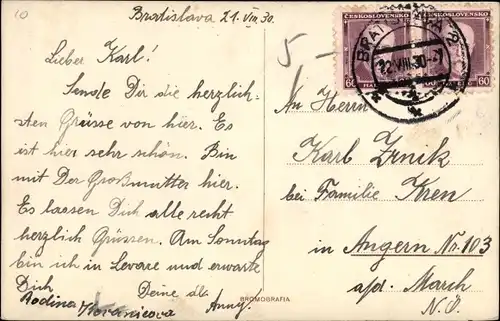 10
Bratislava 21. VIII. 30.
Lieber Karl!
Sende Dir die herzlich-
sten Grüsse von hier. Es
ist hier sehr schön. Bin
mit Der Großmutter hier.
Es lassen Dich alle recht
herzlich Grüssen. Am Sonntag
bin ich in Levare und erwarte
Dich
Deine dl. Anny.
Rodina
5 —
ČESKOSLOVENSKO
ČESKOSLOVENSKO
60
60
22.VIII.30
An Herrn
Karl
bei Familie Kren
in Angern No. 103
a/d. March
N.Ö.
BROMOGRAFIA